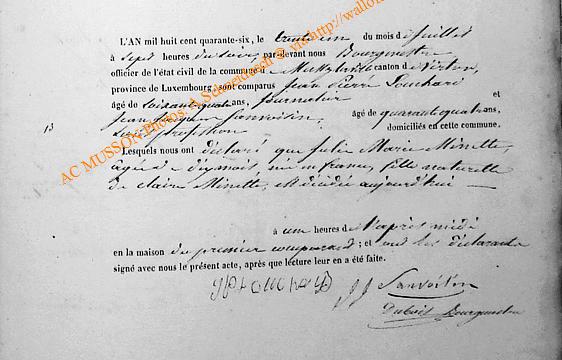 L'AN mil huit cent quarante-six, le trente un du mois de juillet
à sept heures du soir, par-devant nous Bourgmestre
officier de l'état civil de la commune de Mussy la ville canton de Virton,
province de Luxembourg, sont comparus Jean Pierre Louchard
âgé de soixante quatre ans, journalier et
Jean Jacques Sanvoitin âgé de quarante quatre ans,
13
sans profession domiciliés en cette commune.
Lesquels nous ont déclaré que Julie Marie Minette,
âgée de dix mois née en france, fille naturelle
de claire Minette, est décédée aujourd'hui
à une heures de l'après midi
en la maison du premier comparant; et ont les déclarants
signé avec nous le présent acte, après que lecture leur en a été faite.
JJ Sanvoitin
Dubois Bourgmestre
AC MUSSON Photos: A.Schneidesch © via http://wallon